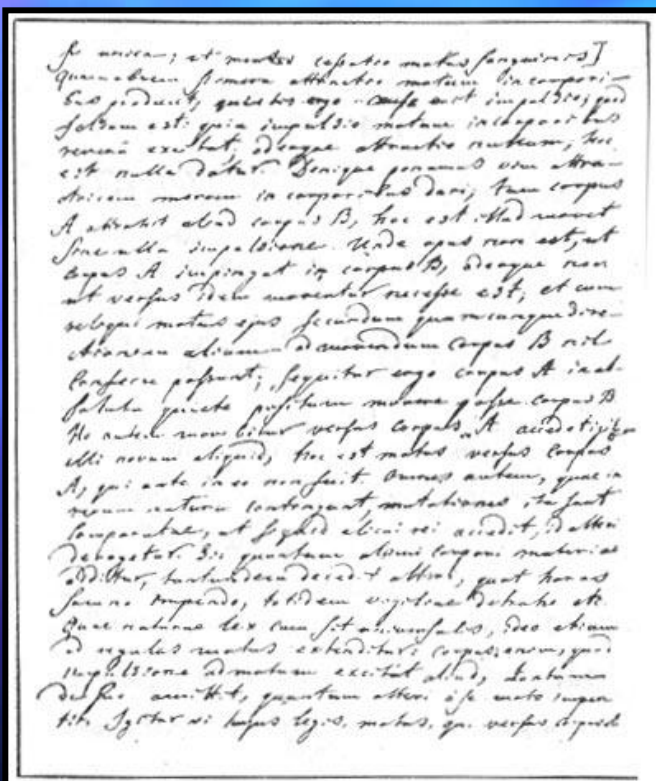 sit unica; et mortis cessatio motus sanguinis]
Quamobrem si mera attractio motum in corpori-
bus producit, quietis ergo causa erit impulsio; quod
falsum est: quia impulsio motum in corporibus
revera excitat, adeoque attractio nullum, hoc
est nulla datur. Denique ponamus vim attra-
ctricem meram in corporibus dari; tum corpus
A attrahit aliud corpus B, hoc est illud movet
sine ulla impulsione. Unde opus non est, ut
corpus A impingat in corpus B, adeoque non
ut versus idem moveatur necesse est; et cum
reliqui motus ejus secundum quamcunque dire-
ctionem aliam ad movendum corpus B nil
conferre possunt; sequitur ergo corpus A in ab-
soluta quiete positum movere posse corpus B.
Hoc autem movebitur versus corpus A accedet igitur
illi novum aliquid, hoc est motus versus corpus
A, qui ante in eo non fuit. Omnes autem, quae in
rerum natura contingunt, mutationes ita sunt
comparatae, ut si quid alicui rei accedit, id alteri
derogetur. Sic quantum alicui corpori materiae
additur, tantundem decedit alteri, quot horas
somno impendo, totidem vigiliae detraho etc.
Quae naturae lex cum sit universalis, ideo etiam
ad regulas motus extenditur: corpus enim, quod
impulsione ad motum excitat aliud, tantum
de suo amittit, quantum alteri a se moto imper-
tit. Igitur vi hujus legis, motus, qui versus